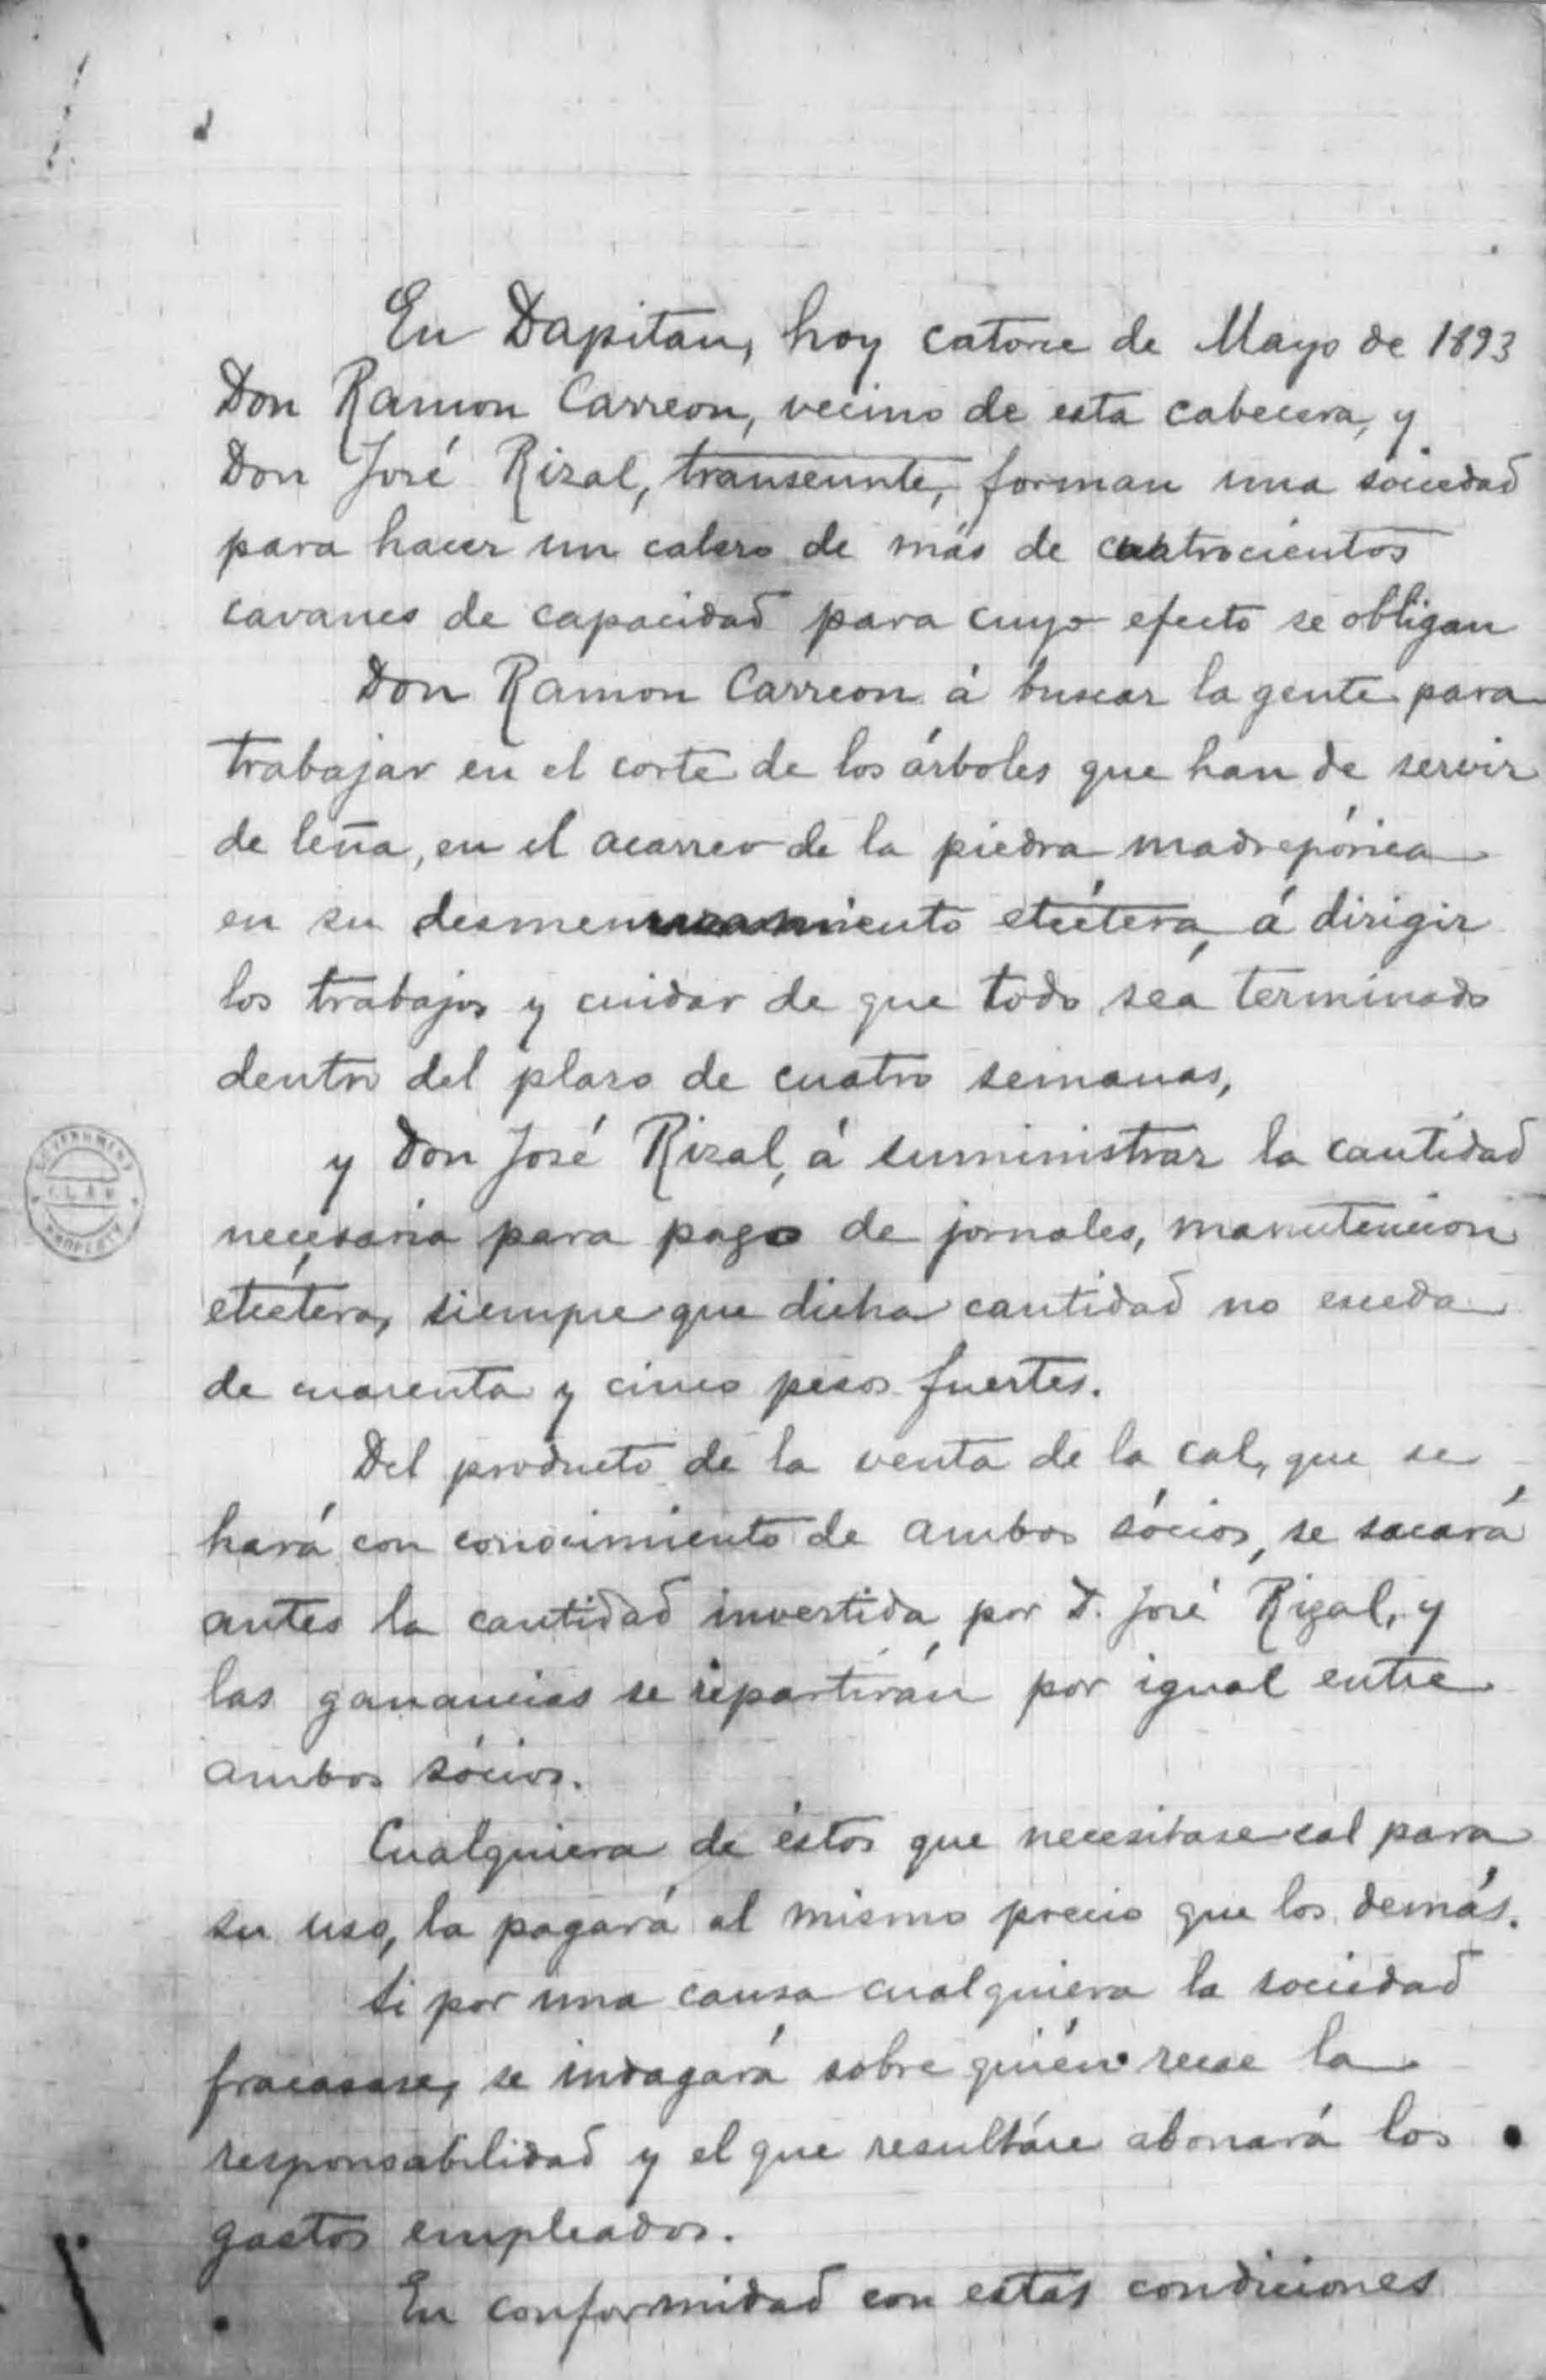 En Dapitan, hoy catorce de Mayo de 1893
Don Ramon Carreon, vecino de esta cabecera, y
Don José Rizal, transeunte, forman una sociedad
para hacer un calero de más de cuatrocientos
cavanes de capacidad para cuyo efecto se obligan
Don Ramon Carreon á buscar la gente para
trabajar en el corte de los árboles que han de servir
de leña, en el acarreo de la piedra madrepórica
en su desmenuzamiento etcétera, á dirigir
los trabajos y cuidar de que todo sea terminado
dentro del plazo de cuatro semanas,
y Don José Rizal, á suministrar la cantidad
necesaria para pago de jornales, manutencion
etcétera, siempre que dicha cantidad no exceda
de cuarenta y cinco pesos fuertes.
Del producto de la venta de la cal, que se
hará con conocimiento de ambos sócios, se sacará
antes la cantidad invertida por D. José Rizal, y
las ganancias se repartirán por igual entre
ambos sócios.
Cualquiera de éstos que necesitase cal para
su uso, la pagará al mismo precio que los demás.
Si por una causa cualquiera la sociedad
fracasase, se indagará sobre quién recae la
responsabilidad y el que resultáre abonará los
gastos empleados.
En conformidad con estas condiciones
GOVERNMENT
PROPERTY